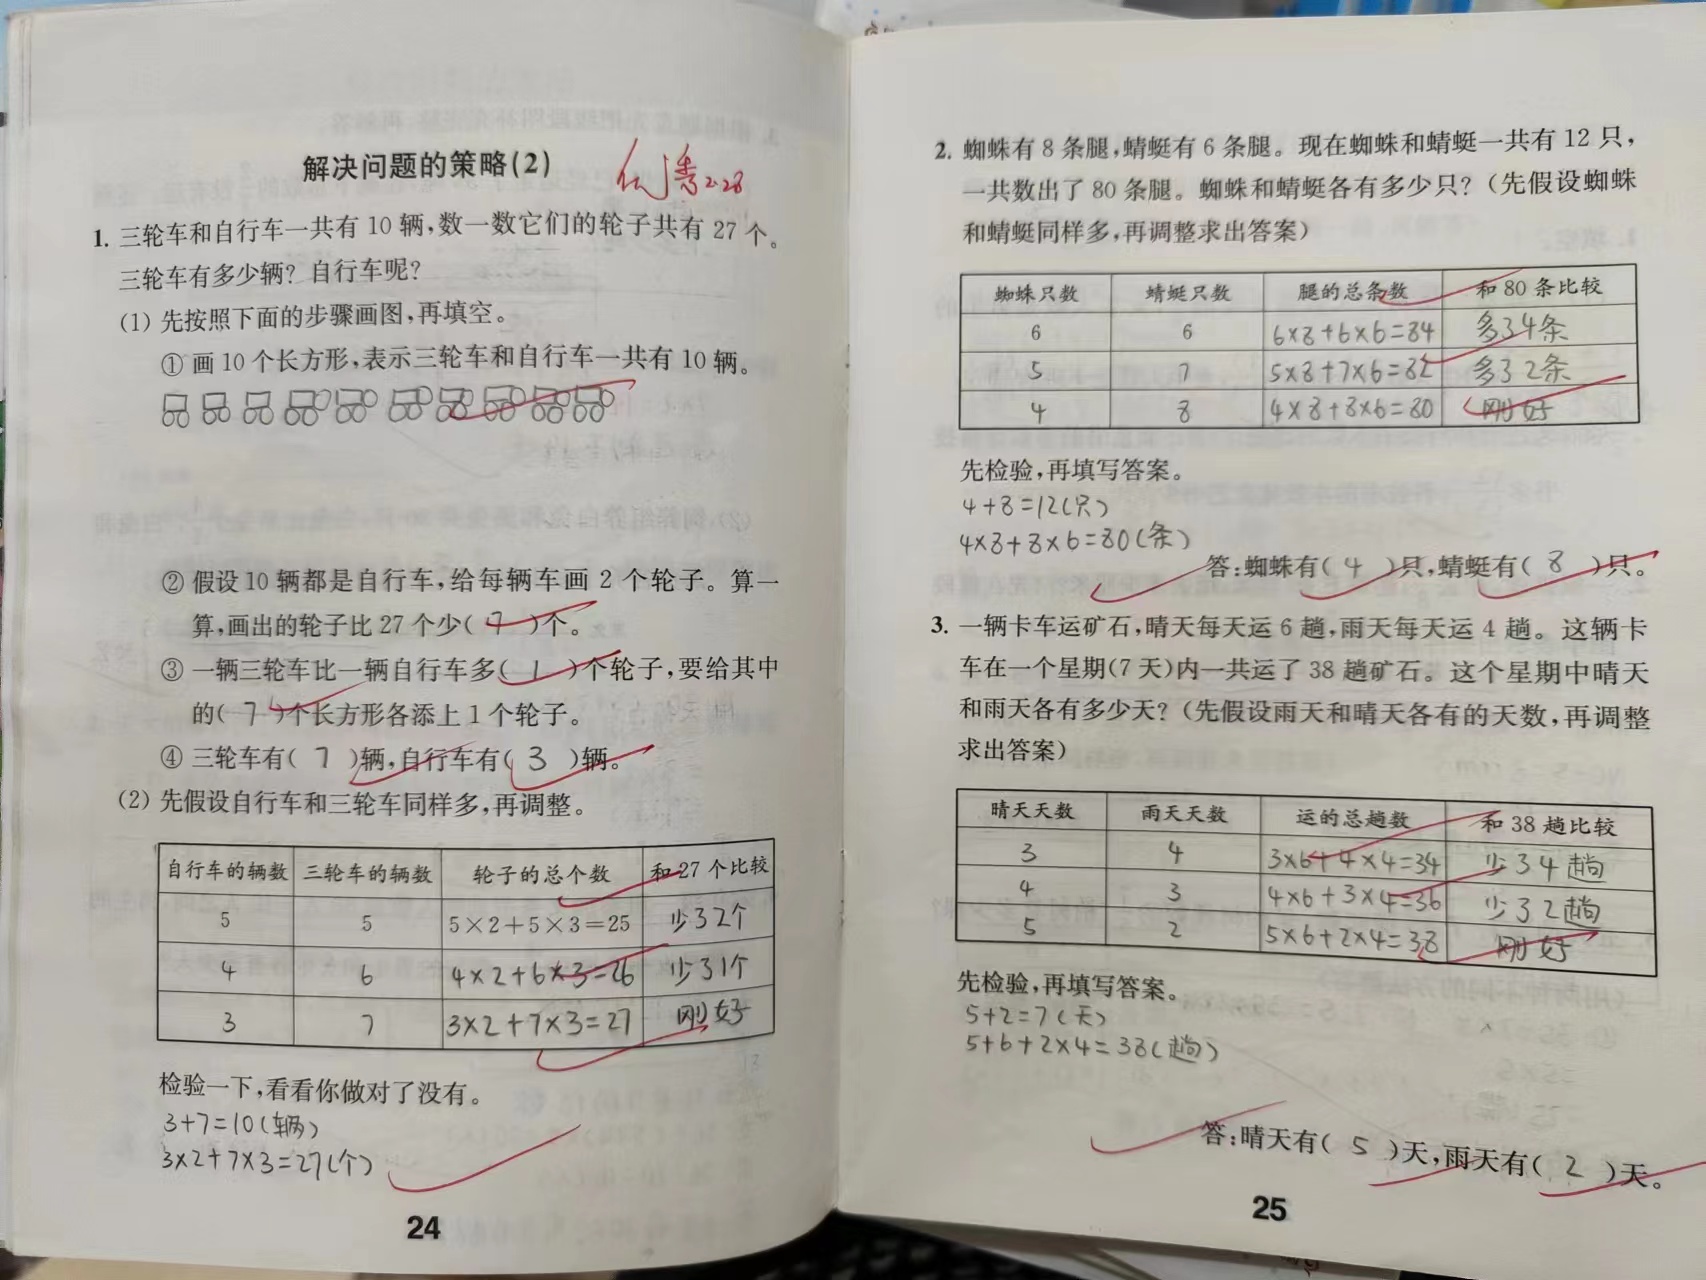 解决问题的策略(2)
优 2.28
1. 三轮车和自行车一共有 10 辆,数一数它们的轮子共有 27 个。
三轮车有多少辆? 自行车呢?
(1) 先按照下面的步骤画图,再填空。
① 画 10 个长方形,表示三轮车和自行车一共有 10 辆。
② 假设 10 辆都是自行车,给每辆车画 2 个轮子。算一
算,画出的轮子比 27 个少( 7 )个。
③ 一辆三轮车比一辆自行车多( 1 )个轮子,要给其中
的( 7 )个长方形各添上 1 个轮子。
④ 三轮车有( 7 )辆,自行车有( 3 )辆。
(2) 先假设自行车和三轮车同样多,再调整。
自行车的辆数 三轮车的辆数 轮子的总个数 和 27 个比较
5 5 5×2+5×3=25 少了2个
4 6 4×2+6×3=26 少了1个
3 7 3×2+7×3=27 刚好
检验一下,看看你做对了没有。
3+7=10(辆)
3×2+7×3=27(个)
24
2. 蜘蛛有 8 条腿,蜻蜓有 6 条腿。现在蜘蛛和蜻蜓一共有 12 只,
一共数出了 80 条腿。蜘蛛和蜻蜓各有多少只? (先假设蜘蛛
和蜻蜓同样多,再调整求出答案)
蜘蛛只数 蜻蜓只数 腿的总条数 和 80 条比较
6 6 6×8+6×6=84 多了4条
5 7 5×8+7×6=82 多了2条
4 8 4×8+8×6=80 刚好
先检验,再填写答案。
4+8=12(只)
4×8+8×6=80(条)
答:蜘蛛有( 4 )只,蜻蜓有( 8 )只。
3. 一辆卡车运矿石,晴天每天运 6 趟,雨天每天运 4 趟。这辆卡
车在一个星期(7 天)内一共运了 38 趟矿石。这个星期中晴天
和雨天各有多少天? (先假设雨天和晴天各有的天数,再调整
求出答案)
晴天天数 雨天天数 运的总趟数 和 38 趟比较
3 4 3×6+4×4=34 少了4趟
4 3 4×6+3×4=36 少了2趟
5 2 5×6+2×4=38 刚好
先检验,再填写答案。
5+2=7(天)
5+6+2×4=38(趟)
答:晴天有( 5 )天,雨天有( 2 )天。
25